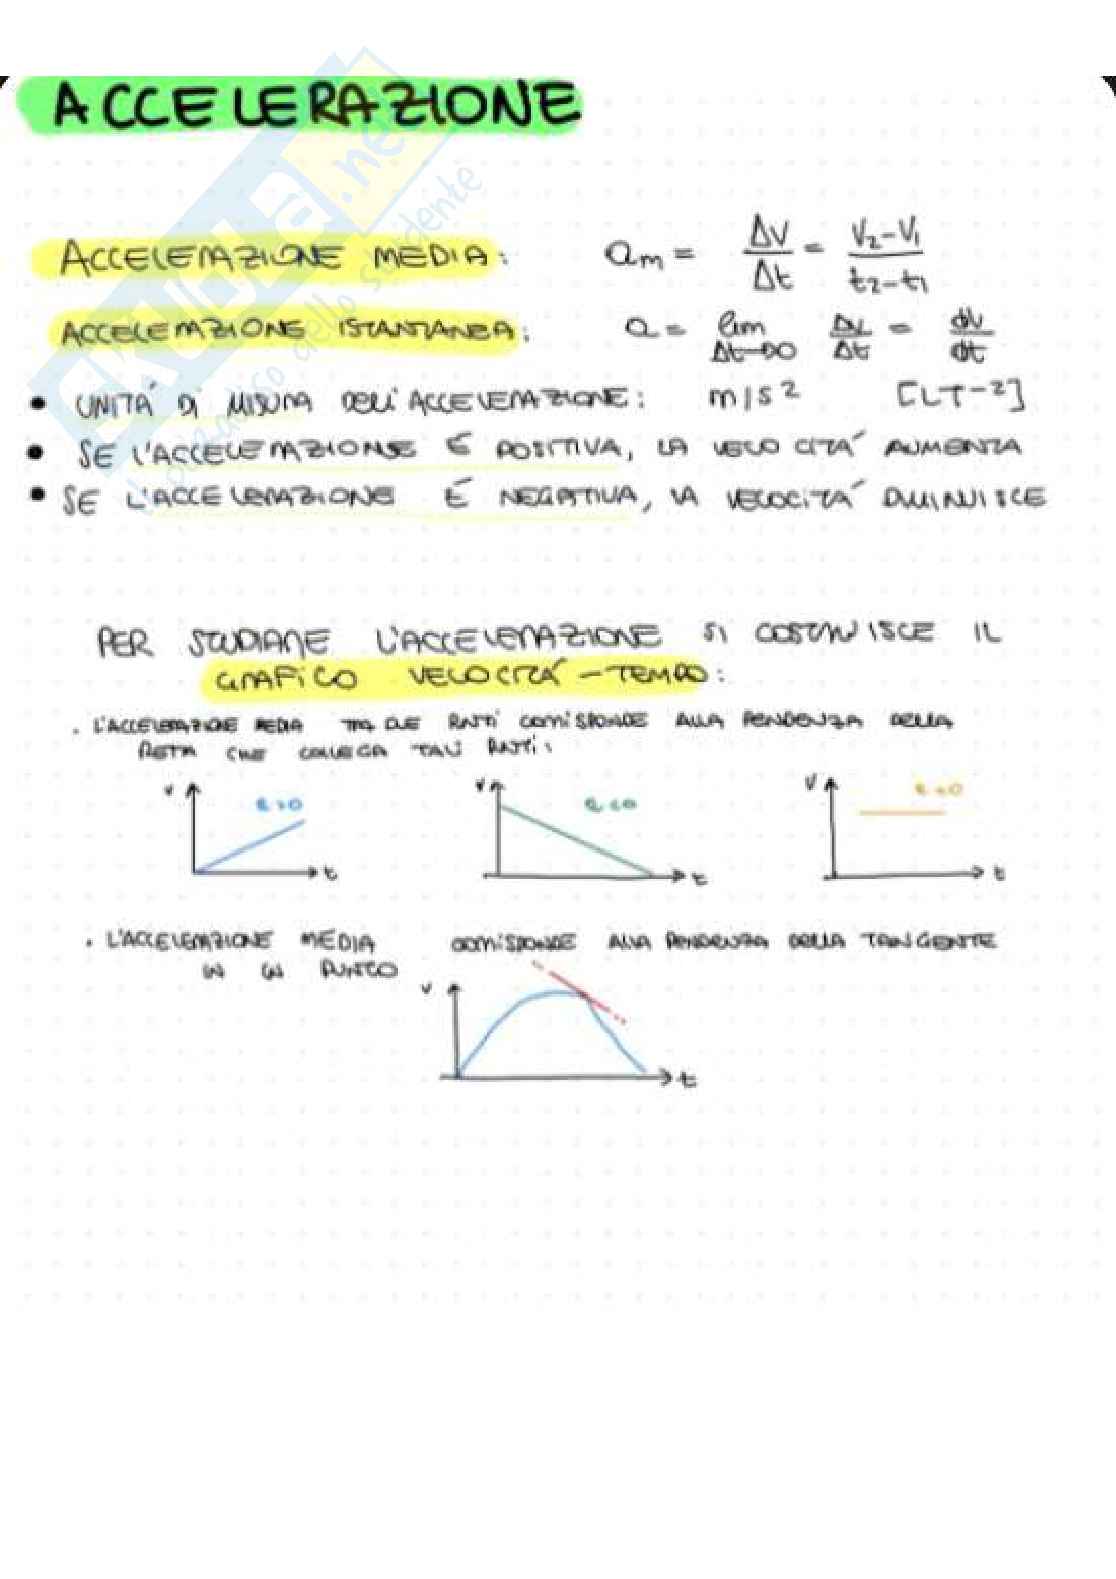 ACCELERAZIONE
ACCELERAZIONE MEDIA: am = ΔV/Δt = V2-V1/t2-t1
ACCELERAZIONE ISTANTANEA: a = lim Δt→0 ΔV/Δt = dV/dt
• UNITÁ DI MISURA DELL'ACCELERAZIONE: m/s² [LT-²]
• SE L'ACCELERAZIONE É POSITIVA, LA VELOCITÁ AUMENTA
• SE L'ACCELERAZIONE É NEGATIVA, LA VELOCITÁ DIMINUISCE
PER STUDIARE L'ACCELERAZIONE SI COSTRUISCE IL
GRAFICO VELOCITÁ-TEMPO:
. L'ACCELERAZIONE MEDIA TRA DUE PUNTI CORRISPONDE ALLA PENDENZA DELLA
RETTA CHE COLLEGA TALI PUNTI:
V a>0 t
V a<0 t
V a=0 t
. L'ACCELERAZIONE MEDIA CORRISPONDE ALLA PENDENZA DELLA TANGENTE
IN UN PUNTO
V t